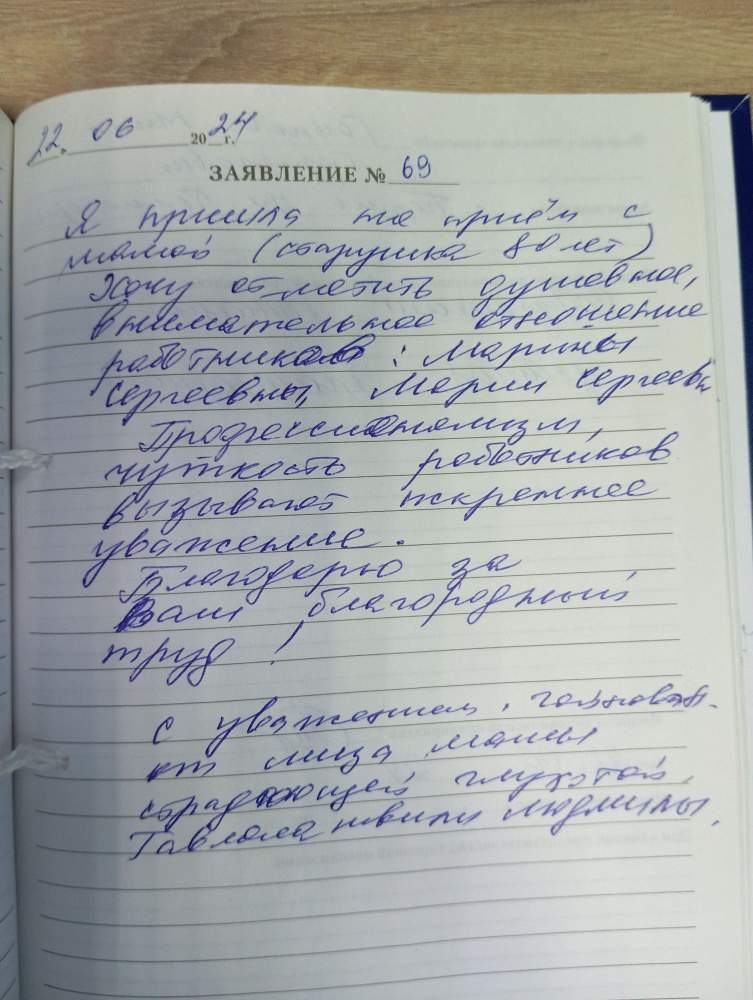 22. 06 2024 г.
ЗАЯВЛЕНИЕ № 69
Я пришла на приём с
мамой (старушка 80 лет)
Хочу отметить душевное,
внимательное отношение
работников: Марины
Сергеевны, Марии Сергеевн
Профессионализм,
чуткость работников
вызывают искреннее
уважение.
Благодарю за
Ваш благородный
труд!
с уважением,
от лица мамы
страдающей глухотой,
Людмилы.